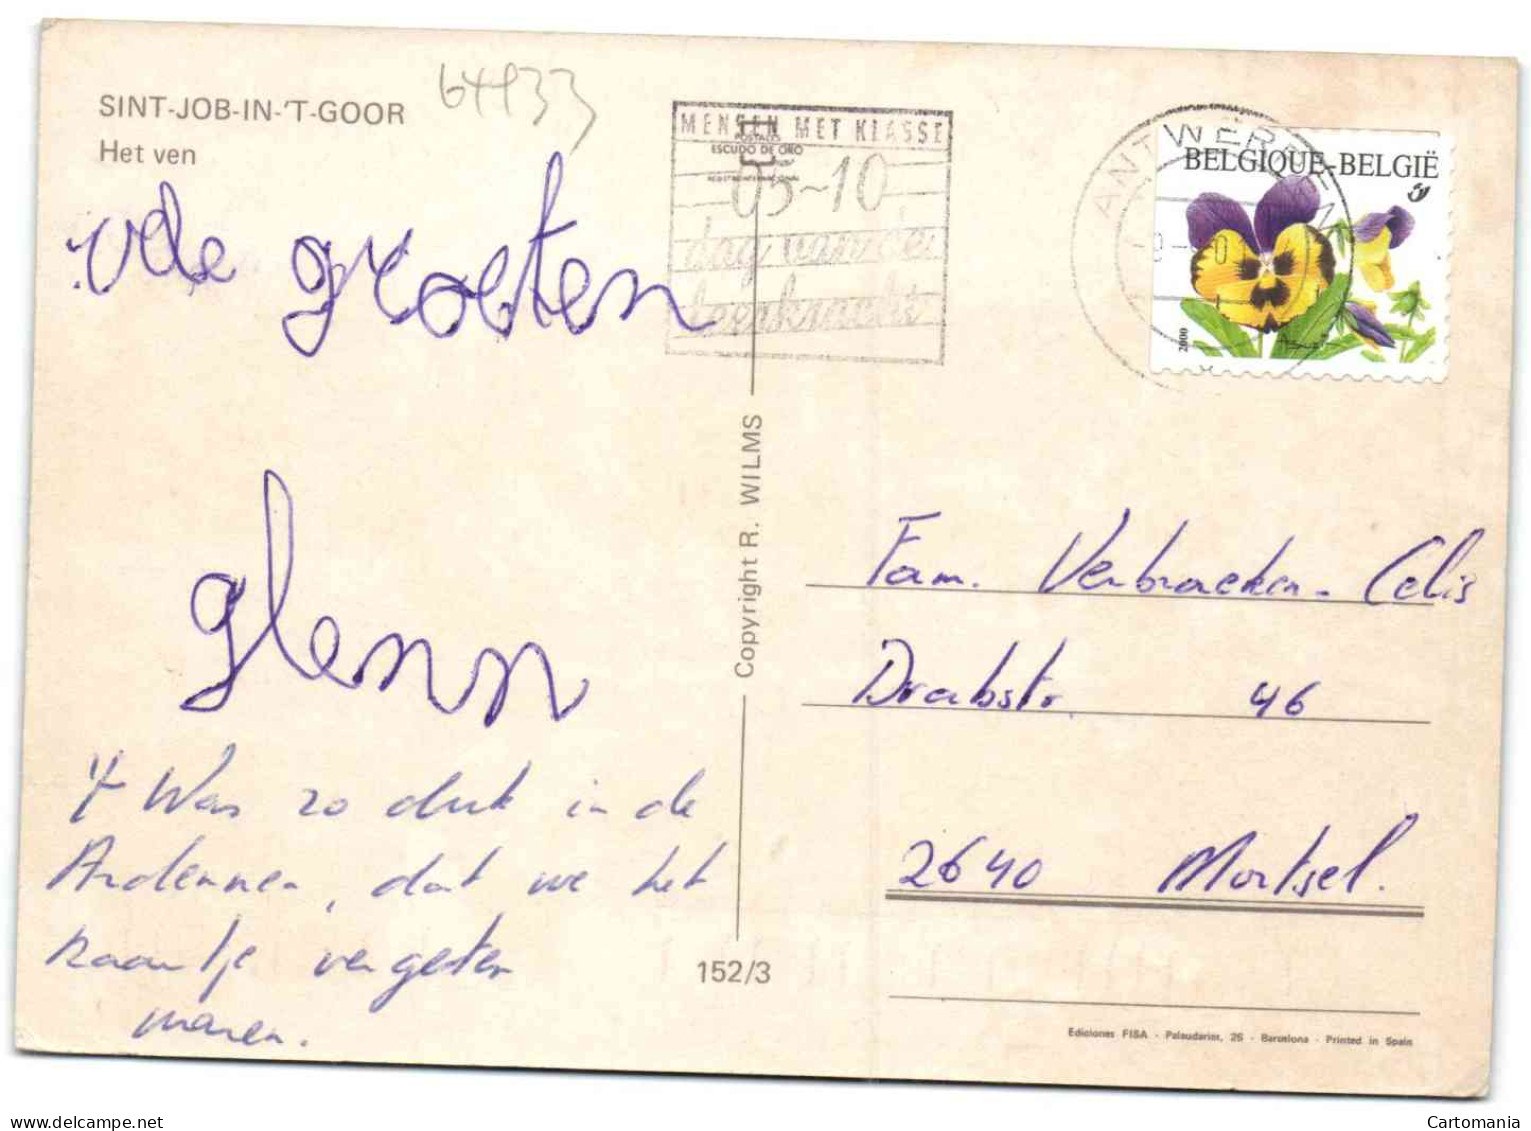 SINT-JOB-IN-'T-GOOR
Het ven
64933
vele groeten
glenn
't Was zo druk in de
Ardennen, dat we het
kaartje vergeten
waren.
MENSEN MET KLASSE
POSTALES
ESCUDO DE ORO
05-10
dag van de
leerkracht
ANTWERPEN
BELGIQUE-BELGIË
2000
Copyright R. WILMS
Fam. Verbraeken-Celis
Drabstr. 46
2640 Mortsel.
152/3
Ediciones FISA - Palaudarias, 26 - Barcelona - Printed in Spain
delcampe.net
Cartomania